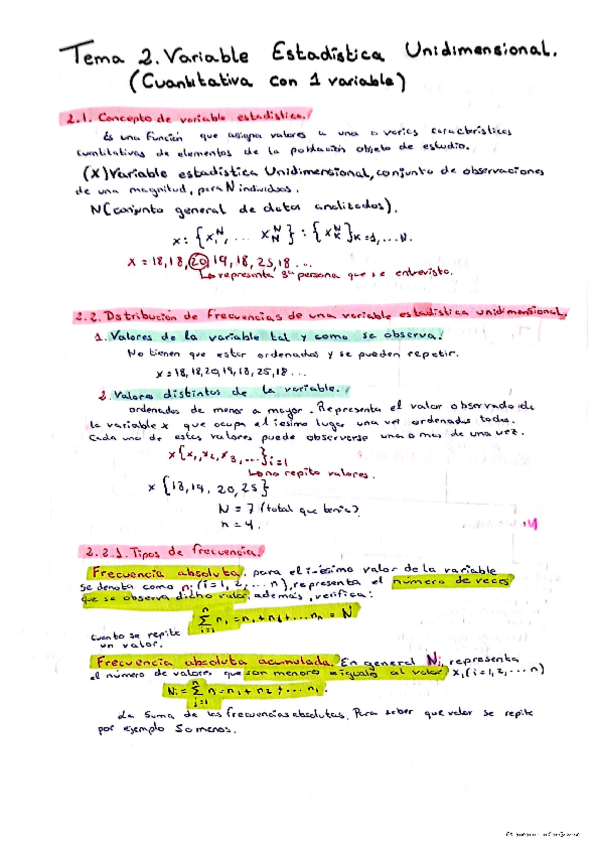 Tema 2. Variable Estadística Unidimensional.
(Cuantitativa con 1 variable)
2.1. Concepto de variable estadistica.
Es una función que asigna valores a una o varias características
cuantitativas de elementos de la población objeto de estudio.
(X) Variable estadística Unidimensional, conjunto de observaciones
de una magnitud, para N individuos.
N (conjunto general de datos analizados).
x: {x₁ᴺ, ... x_Nᴺ} : {x_Kᴺ}K=1, ...N.
x = 18,18,20,19,18,25,18 ...
↳ representa 3ª persona que se entrevisto.
2.2. Distribución de Frecuencias de una variable estadística unidimensional.
1. Valores de la variable tal y como se observa.
No tienen que estar ordenados y se pueden repetir.
x = 18,18,20,19,18,25,18 ...
2. Valores distintos de la variable.
ordenados de menor a mayor. Representa el valor observado de
la variable x que ocupa el iesimo lugar una vez ordenados todos.
Cada uno de estos valores puede observarse una o mas de una vez.
x {x₁, x₂, x₃, ...}i=1
↳ no repito valores.
x {18,19, 20,25}
N = 7 (total que tenia)
n = 4.
2.2.1. Tipos de frecuencia.
Frecuencia absoluta. para el i-ésimo valor de la variable
se denota como nᵢ (i=1, 2, ... n), representa el número de veces
que se observa dicho valor, además, verifica:
n
Σ nᵢ = n₁ + n₂ + ... nₙ = N
i=1
cuanto se repite
un valor.
Frecuencia absoluta acumulada. En general Nᵢ, representa
el número de valores que son menores o iguales al valor xᵢ (i=1,2, ... n)
Nᵢ = Σ n = n₁ + n₂ + ... nᵢ.
j=1
La Suma de las frecuencias absolutas. Para saber que valor se repite
por ejemplo 50 menos.